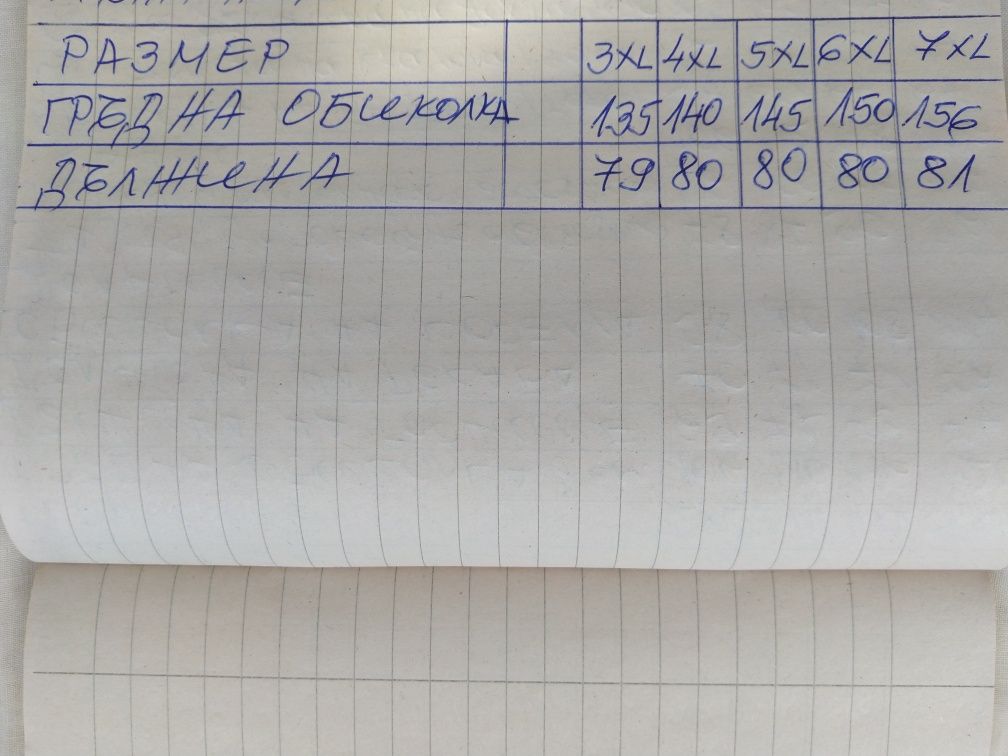 РАЗМЕР 3XL 4XL 5XL 6XL 7XL
ГРЪДНА ОБИКОЛКА 135 140 145 150 156
ДЪЛЖИНА 79 80 80 80 81